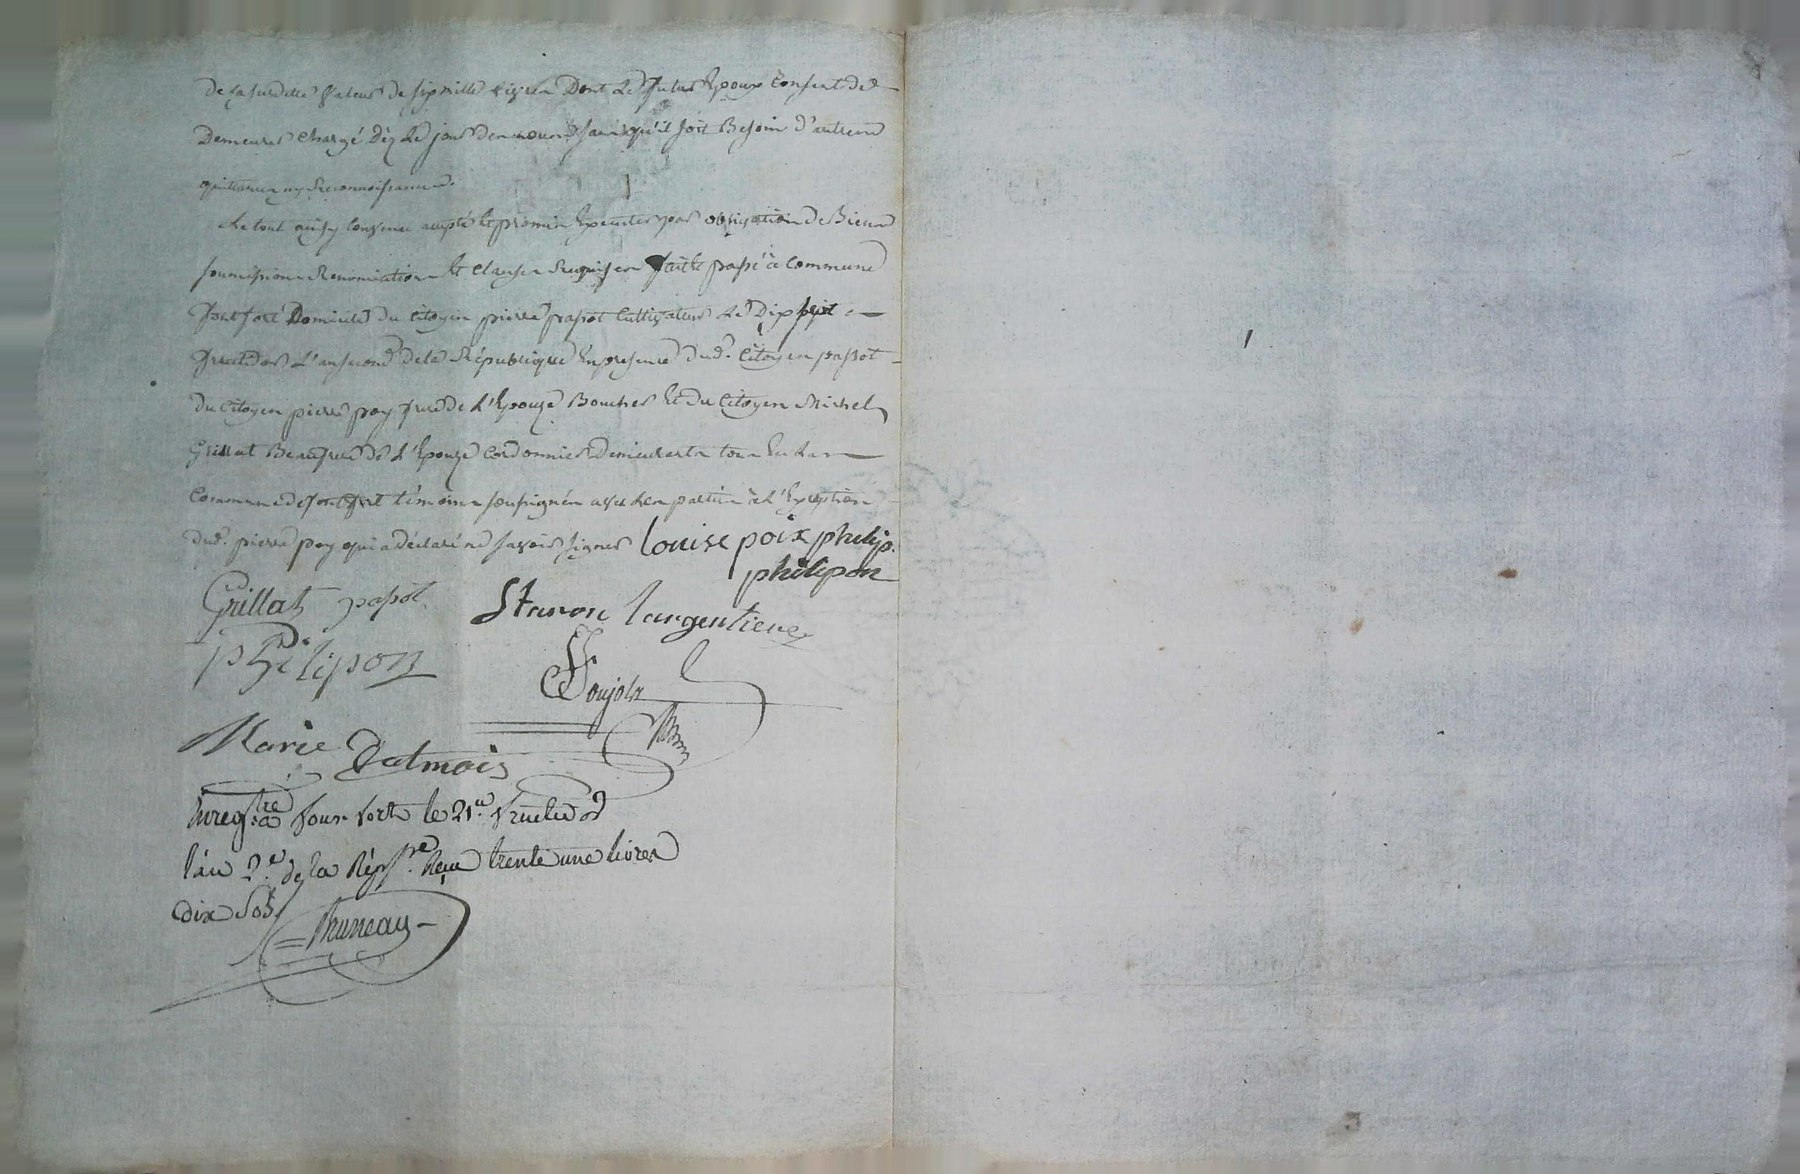 de la susditte valeur de six mille livres Dont Le futur Epoux Consent de
Demeurer chargé Dèz Le jour des nouces sans qu'il soit Besoin d'autres
quittance ny Reconnoissance.
Le tout ainsy convenu accepté et promis Executer par obligation de Biens
soumissions Renonciations Et clauses Requises fait et passé à commune
fontfort Domicile du citoyen pierre passot Cultivateur Le Dix sept
fructidor L'an second de la République En presence dud. citoyen passot
du citoyen pierre poy frere de L'Epouze Boucher Et du Citoyen Michel
Grillat Beaufrere de L'Epouze cordonnier Demeurants tous En La
commune de fontfort témoins soussignés avec Les parties à L'Exception
dud. pierre poy qui a déclaré ne savoir signer louise poix philip.
philipon
Grillat passot
Staron largentiere
philipon
Goujols
Marie Dalmois
Enreg.tré a font forte le 21.e fructidor
l'an 2.e de la Rép.que Reçu trente une livres
dix sols
Bruneau